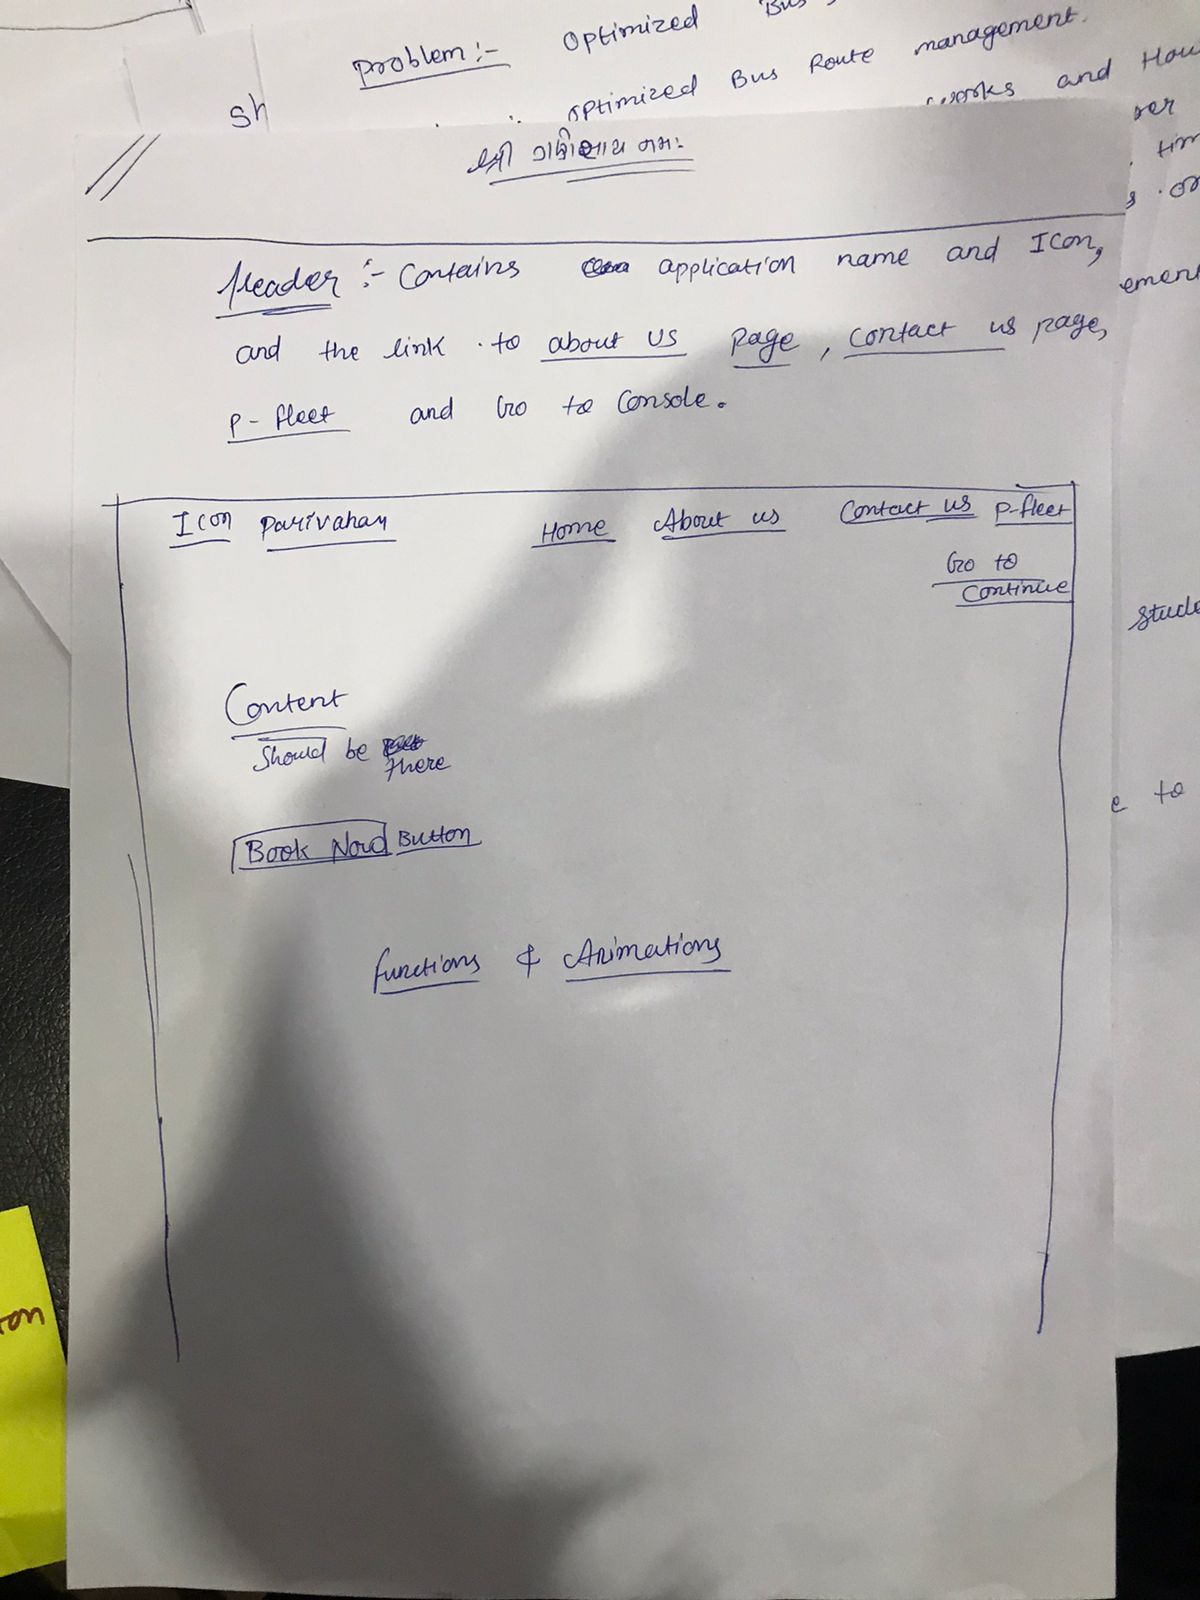 Problem:- Optimized Bus
optimized Bus Route management.
works and Hou
sh
શ્રી ગણેશાય નમઃ
Header:- Contains application name and Icon,
and the link to about us page, contact us page,
P-fleet and Go to Console.
Icon Parivahan Home About us Contact us P-fleet
Go to
Continue
Content
Should be
there
Book Now Button
functions & Animations
ement
stude
e to